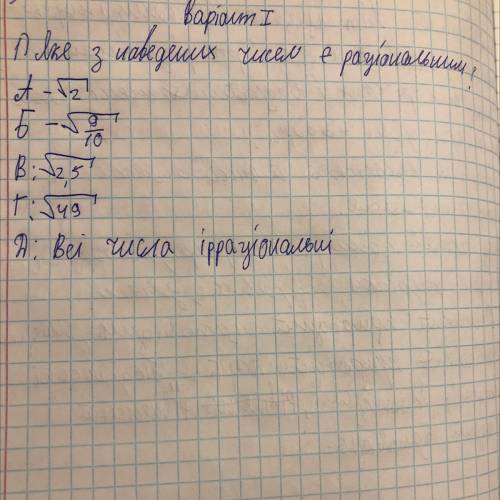 Варіант I
1) Яке з наведених чисел є раціональним?
А - √2
Б - √9/10
В: √2,5
Г: √49
Д: Всі числа ірраціональні